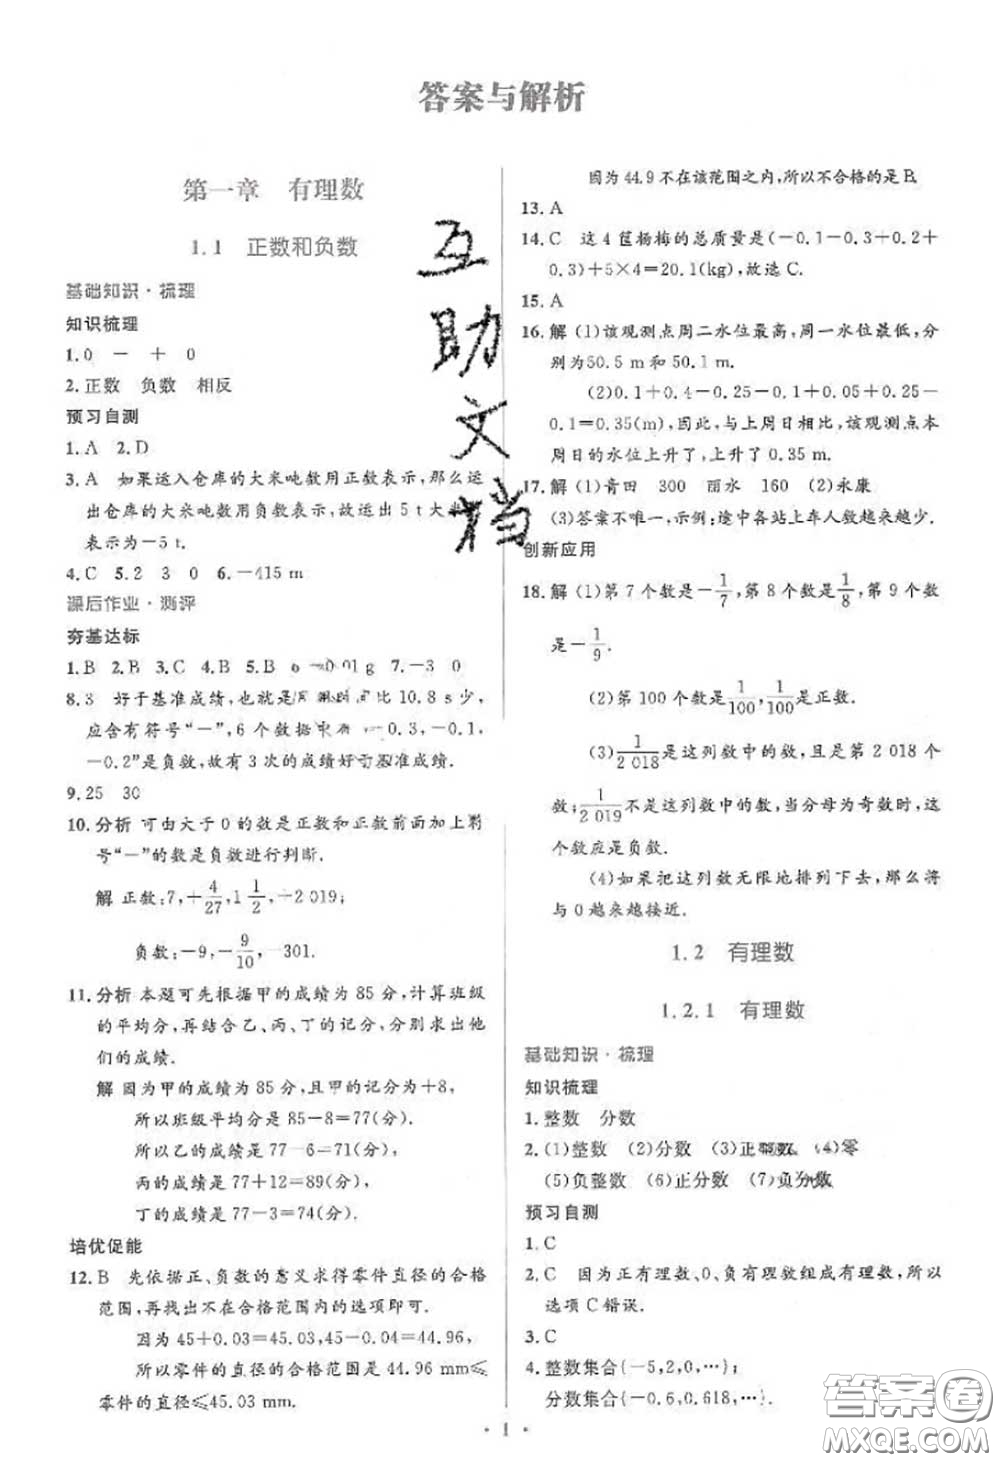 答案与解析
第一章　有理数
1.1　正数和负数
基础知识·梳理
知识梳理
1.0　－　＋　0
2.正数　负数　相反
预习自测
1.A　2.D
3.A　如果运入仓库的大米吨数用正数表示,那么运
出仓库的大米吨数用负数表示,故运出 5 t大
表示为－5 t.
4.C　5.2　3　0　6.－415 m
课后作业·测评
夯基达标
1.B　2.B　3.C　4.B　5.B　6　0.01 g　7.－3　0
8.3　好于基准成绩,也就是　比 10.8 s少,
应含有符号“－”,6 个数据中　－0.3,－0.1,
－0.2”是负数,故有 3 次的成绩好于基准成绩.
9.25　30
10.分析 可由大于 0 的数是正数和正数前面加上符
号“－”的数是负数进行判断.
解 正数:7,＋4/27,1 1/2,－2 019;
负数:－9,－9/10,－301.
11.分析 本题可先根据甲的成绩为 85 分,计算班级
的平均分,再结合乙、丙、丁的记分,分别求出他
们的成绩.
解 因为甲的成绩为 85 分,且甲的记分为＋8,
所以班级平均分是 85－8＝77(分).
所以乙的成绩是 77－6＝71(分),
丙的成绩是 77＋12＝89(分),
丁的成绩是 77－3＝74(分).
培优促能
12.B　先依据正、负数的意义求得零件直径的合格
范围,再找出不在合格范围内的选项即可.
因为 45＋0.03＝45.03,45－0.04＝44.96,
所以零件的直径的合格范围是 44.96 mm≤
零件的直径≤45.03 mm.
因为 44.9 不在该范围之内,所以不合格的是 B.
13.A
14.C　这 4 筐杨梅的总质量是(－0.1－0.3＋0.2＋
0.3)＋5×4＝20.1(kg),故选 C.
15.A
16.解 (1)该观测点周二水位最高,周一水位最低,分
别为50.5 m 和 50.1 m.
(2)0.1＋0.4－0.25－0.1＋0.05＋0.25－
0.1＝0.35(m),因此,与上周日相比,该观测点本
周日的水位上升了,上升了 0.35 m.
17.解 (1)青田　300　丽水　160　(2)永康
(3)答案不唯一,示例:途中各站上车人数越来越少.
创新应用
18.解 (1)第 7 个数是－1/7,第 8 个数是1/8,第 9 个数
是－1/9.
(2)第 100 个数是1/100,1/100是正数.
(3)1/2 018是这列数中的数,且是第 2 018 个
数;1/2 019不是这列数中的数,当分母为奇数时,这
个数应是负数.
(4)如果把这列数无限地排列下去,那么将
与 0 越来越接近.
1.2　有理数
1.2.1　有理数
基础知识·梳理
知识梳理
1.整数　分数
2.(1)整数　(2)分数　(3)正整数　(4)零
(5)负整数　(6)正分数　(7)负分数
预习自测
1.C
2.C　因为正有理数、0、负有理数组成有理数,所以
选项 C 错误.
3.C
4.整数集合{－5,2,0,…};
分数集合{－0.6,0.618,…}.
· 1 ·
互
助
文
档
答案卷
MXQE.COM